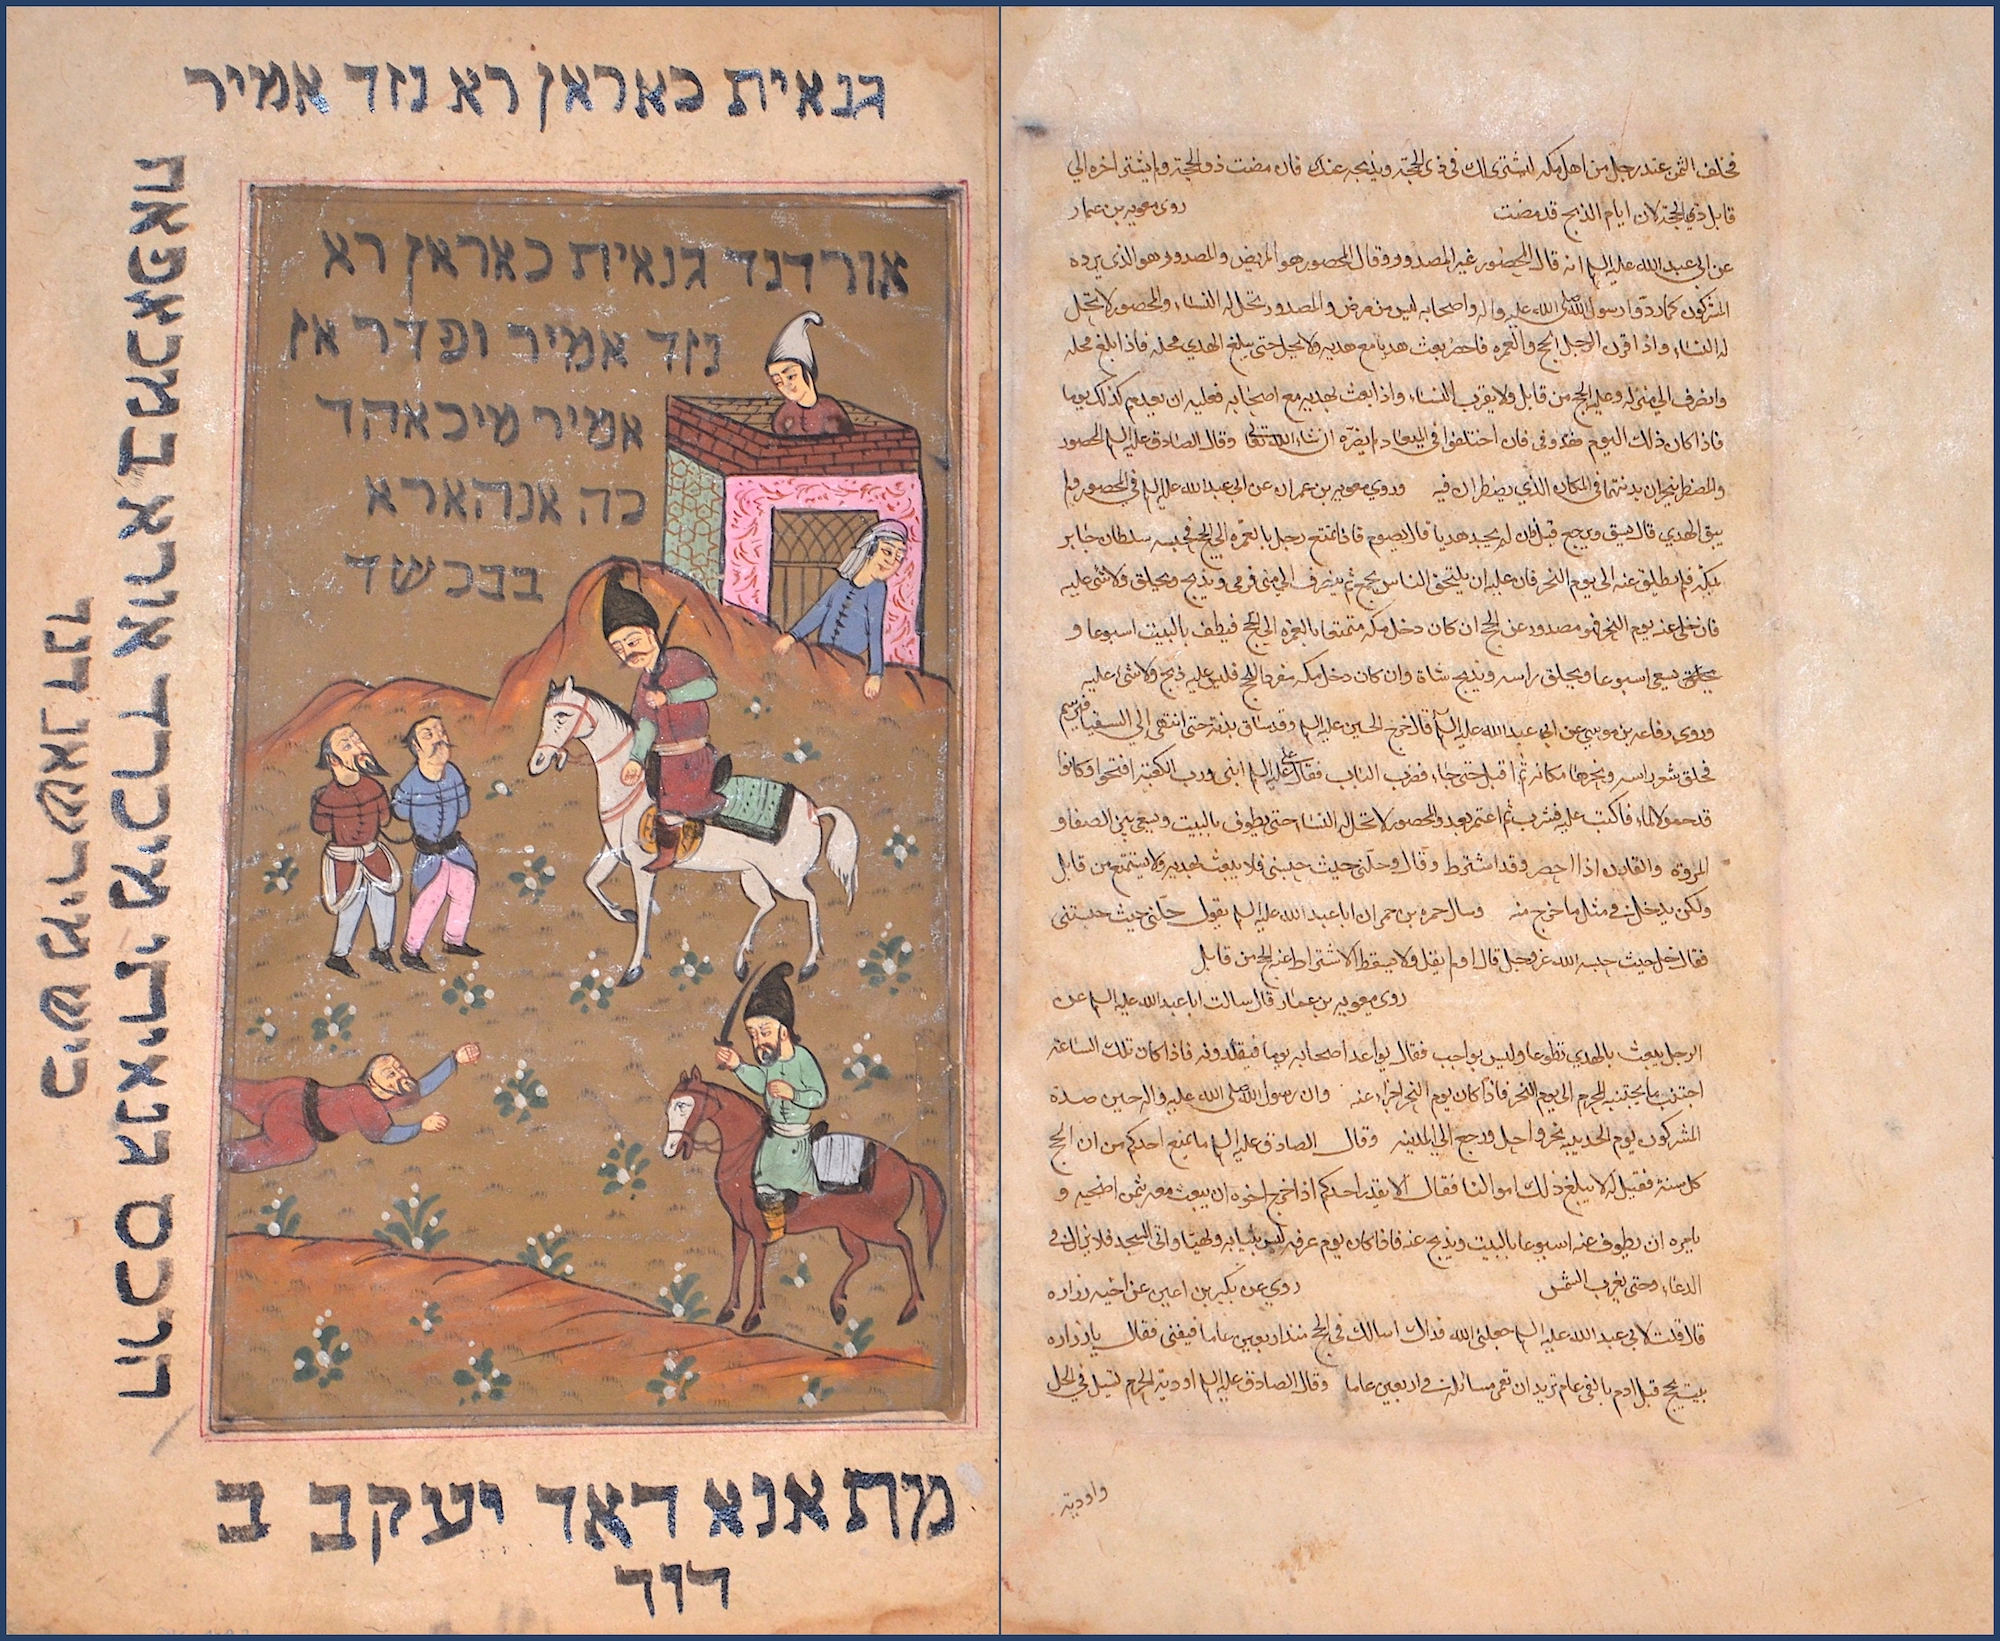 גנאית כאראן רא נזד אמיר
אורדנד גנאית כאראן רא
נזד אמיר ופדר אז
אמיר מיכאהד
כה אנהארא
בבכשד
הרכס גנאיתי מיכרד אורא במכאפאה
כיש מירשאנ דנד
מת אנא דאד יעקב ב
דוד
فخلف الثمن عند رجل من اهل مكه ليشترى لك في ذى الحجة ويذبحه عنك فان مضت ذو الحجة ولم يشتر اخره الي
قابل ذي الحجة لان ايام الذبح قد مضت روى معويه بن عمار
عن ابي عبد الله عليه السلم انه قال المحصور غير المصدود وقال المحصور هو المريض والمصدود هو الذي يرده
المشركون كما ردوا رسول الله صلى الله عليه واله واصحابه ليس من مرض والمصدود تحل له النساء والمحصور لا تحل
له النساء واذا قرن الرجل الحج والعمره فاحصر بعث هديا مع هديه ولا يحل حتى يبلغ الهدي محله فاذا بلغ محله
وانصرف الي منزله وعليه الحج من قابل ولا يقرب النساء واذا بعث بهديه مع اصحابه فعليه ان يعدهم كذلك يوما
فاذا كان ذلك اليوم فقد وفى فان اختلفوا في الميعاد لم يضره ان شاء الله تعالى وقال الصادق عليه السلم المحصور
والمضطر ينحران بدنتهما في المكان الذي يضطران فيه وروي معويه بن عمران عن ابي عبد الله عليه السلم في المحصور ولم
يسق الهدي قال ينسق ويرجع قيل فان لم يجد هديا قال يصوم فاذا تمتع رجل بالعمره الي الحج فحبسه سلطان جابر
بمكة فلم يطلق عنه الى يوم النحر فان عليه ان يلتحق الناس بجمع ثم ينصرف الي منى فيرمي ويذبح ويحلق ولا شئ عليه
فان خلى عنه يوم النحر فهو مصدود عن الحج ان كان دخل مكه متمتعا بالعمره الى الحج فليطف بالبيت اسبوعا و
يسعى اسبوعا ويحلق راسه ويذبح شاة وان كان دخل مكه مفردا للحج فليس عليه ذبح ولا شئ عليه
وروى رفاعه بن موسي عن ابي عبد الله عليه السلم قال خرج الحسين عليه السلم وقد ساق بدنة حتى انتهى الى السقيا فبرسم
فحلق شعر راسه ونحرها مكانه ثم اقبل حتى جاء فضرب الباب فقال علي عليه السلم ابنى ورب الكعبة افتحوا وكانوا
قد حموا له الماء فاكب عليه فشرب ثم اعتمر بعد والمحصور لا تحل له النساء حتى يطوف بالبيت ويسعى بين الصفا و
المروة والقارن اذا احصر وقد اشترط وقال وحلني حيث حبستني فلا يبعث بهديه ولا يستمتع من قابل
ولكن يدخل في مثل ما خرج منه وسال حمزه بن حمران ابا عبد الله عليه السلم يقول حلني حيث حبستني
فقال حل حيث حبسه الله عز وجل قال او لم يقل ولا يسقط الاشتراط عنه الحج من قابل
روى معويه بن عمار قال سالت ابا عبد الله عليه السلم عن
الرجل يبعث بالهدي تطوعا وليس بواجب فقال يواعد اصحابه يوما فيقلدونه فاذا كان تلك الساعة
اجتنب ما يجتنبه المحرم الى يوم النحر فاذا كان يوم النحر اجزاء عنه وان رسول الله صلى الله عليه واله حين صده
المشركون يوم الحديبيه نحر واحل ورجع الي المدينه وقال الصادق عليه السلم ما يمنع احدكم من ان الحج
كل سنة فقيل له لا يبلغ ذلك اموالنا فقال الا يقدر احدكم اذا خرج اخوه ان يبعث معه بثمن اضحيه و
يامره ان يطوف عنه اسبوعا بالبيت ويذبح عنه فاذا كان يوم عرفه لبس ثيابه وتهيا واتى المسجد فلا يزال في
الدعاء وحتى يغرب الشمس روي عن بكير بن اعين عن اخيه زراره
قال قلت لابي عبد الله عليه السلم جعلنى الله فداك اسالك في الحج منذ اربعين عاما فيفتني فقال يا زراره
بيت يحج قبل ادم بالفى عام تريد ان تفنى مسائله في اربعين عاما وقال الصادق عليه السلم اودية الحرم تسيل في الحل
واودية